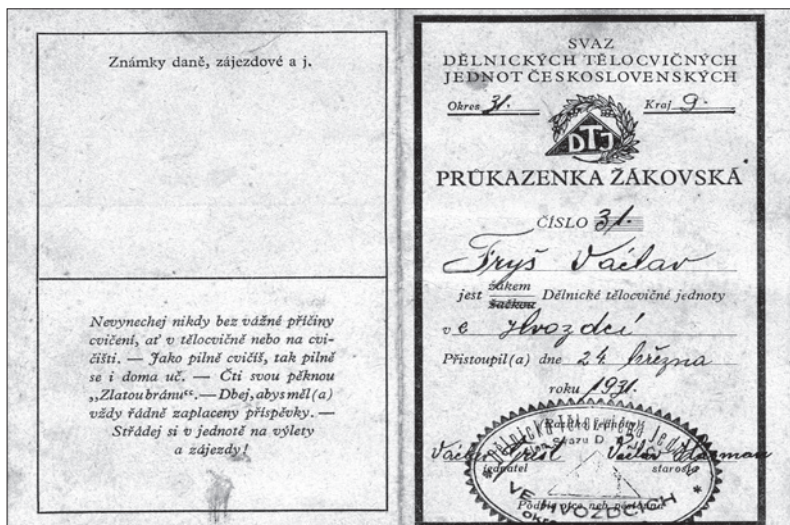 Známky daně, zájezdové a j.
Nevynechej nikdy bez vážné příčiny
cvičení, ať v tělocvičně nebo na cvi-
čišti. — Jako pilně cvičíš, tak pilně
se i doma uč. — Čti svou pěknou
„Zlatou bránu“. — Dbej, abys měl(a)
vždy řádně zaplaceny příspěvky. —
Střádej si v jednotě na výlety
a zájezdy!
SVAZ
DĚLNICKÝCH TĚLOCVIČNÝCH
JEDNOT ČESKOSLOVENSKÝCH
Okres 31. Kraj 9.
DTJ
PRŮKAZENKA ŽÁKOVSKÁ
ČÍSLO 31.
Fryš Václav
jest žákem Dělnické tělocvičné jednoty
žačkou
v e Hvozdci
Přistoupil(a) dne 24. března
roku 1931.
Razítko jednoty:
Dělnická tělocvičná jednota
člen Svazu D
Václav Václav
jednatel starosta
VE HVOZDCÍCH
Podpis otce neb